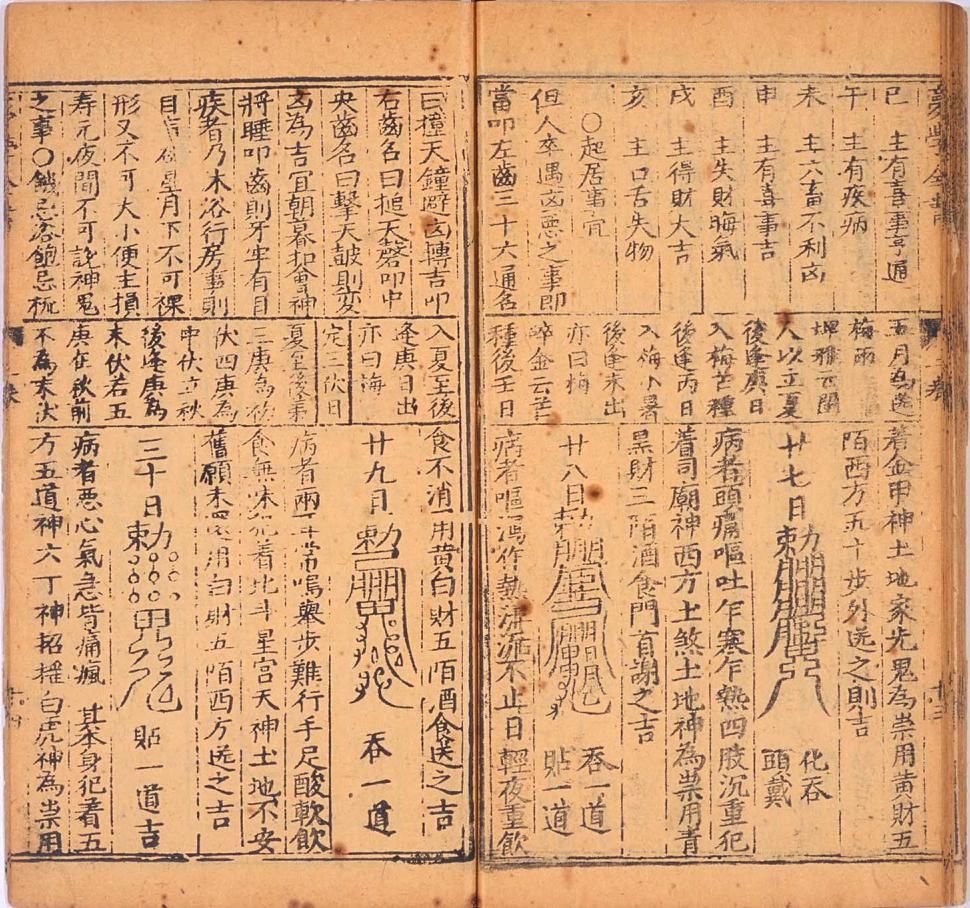 巳 主有喜事亨通
午 主有疾病
未 主六畜不利凶
申 主有喜事吉
酉 主失財晦氣
戌 主得財大吉
亥 主口舌失物
○起居事宜
但人卒遇凶惡之事即
當叩左齒三十六通名
五月為送
梅雨
埤雅云閩
人以立夏
後逢庚日
入梅芒種
後逢丙日
入梅小暑
後逢未出
亦曰梅
碎金云芒
種後壬日
着金甲神土地家先鬼為祟用黄財五
陌西方五十步外送之則吉
廿七日 勅 化吞
頭戴
病者頭痛嘔吐乍寒乍熱四肢沉重犯
着司廟神西方土煞土地神為祟用青
黑財三陌酒食門首謝之吉
廿八日 勅 吞一道
貼一道
病者嘔瀉作熱不止日輕夜重飲
曰撞天鐘避凶轉吉叩
右齒名曰搥天磬叩中
央齒名曰擊天皷則变
凶為吉宜朝暮扣會神
將睡叩齒則牙牢有目
疾者乃木浴行房事則
目星月下不可裸
形又不可大小便主損
寿元夜間不可說神鬼
之事○饑忌浴飽忌梳
入夏至後
逢庚日出
亦曰海
定三伏日
夏至後第
三庚為初
伏四庚為
中伏立秋
後逢庚為
末伏若五
庚在秋前
不為末伏
食不消用黄白財五陌酒食送之吉
廿九日 勅 吞一道
病者兩耳常鳴舉步難行手足酸軟飲
食無味犯着北斗星宮天神土地不安
舊願未還用白財五陌西方送之吉
三十日 勅 貼一道吉
病者惡心氣急皆痛瘋 其本身犯着五
方五道神六丁神招權白虎神為祟用